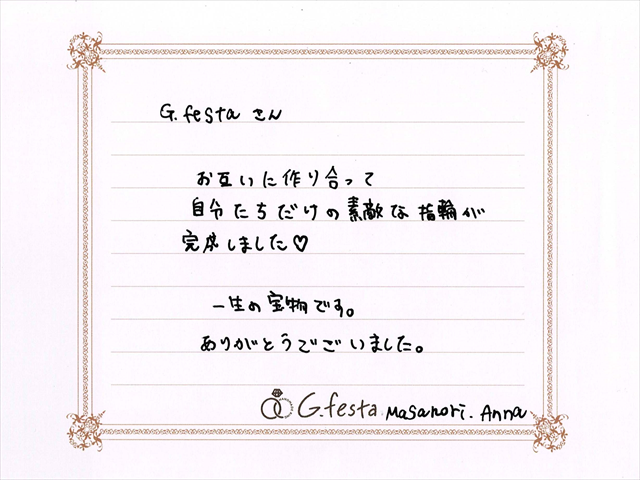 G.festa さん
お互いに作り合って
自分たちだけの素敵な指輪が
完成しました♡
一生の宝物です。
ありがとうございました。
G.festa Masanori. Anna